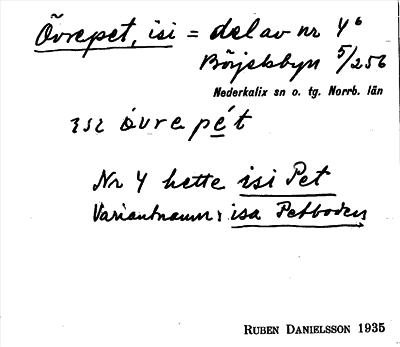 Övrepet, isi = del av nr 4⁶
Börjelsbyn 5/256
Nederkalix sn o. tg. Norrb. län
ɪsɪ óvre pét
Nr 4 hette isi Pet
Variantnamn: isa Petboden
RUBEN DANIELSSON 1935